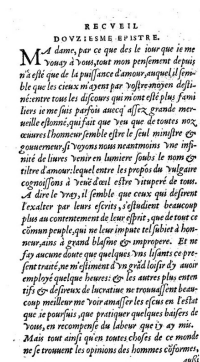 RECVEIL
DOVZIESME EPISTRE.
MA dame, par ce que des le iour que ie me
vouay à vous, tout mon pensement depuis
n'a esté que de la puissance d'amour, auquel, il sem-
ble que les cieux m'ayent par vostre moyen desti-
né: entre tous les discours qui m'ont esté plus fami
liers ie me suis parfois auecq' assez grande mer-
ueille estonné, qui fait que veu que de toutes noz
œuures l'honneur semble estre le seul ministre &
gouuerneur, si voyons nous neantmoins vne infi-
nité de liures venir en lumiere soubs le nom &
tiltre d'amour: lequel entre les propos du vulgaire
cognoissons à veuë d'œil estre vituperé de tous.
A dire le vray, il semble que ceux qui desirent
l'exalter par leurs escrits, s'estudient beaucoup
plus au contentement de leur esprit, que de tout ce
cõmun peuple, qui ne leur impute tel subiet à hon-
neur, ains à grand blasme & impropere. Et ne
fay aucune doute que quelques vns lisants ce pre-
sent traité, ne m'estiment d'vn grãd loisir d'y auoir
employé quelque heures: & les autres plus enten
tifs & desireux de lucratiue ne trouuassent beau-
coup meilleur me voir amasser les escus en l'estat
que ie poursuis, que pratiquer quelques baisers de
vous, en recompense du labeur que i'y ay mis.
Mais tout ainsi qu'en toutes choses de ce monde
ne se trouuent les opinions des hommes cõformes,
aussi